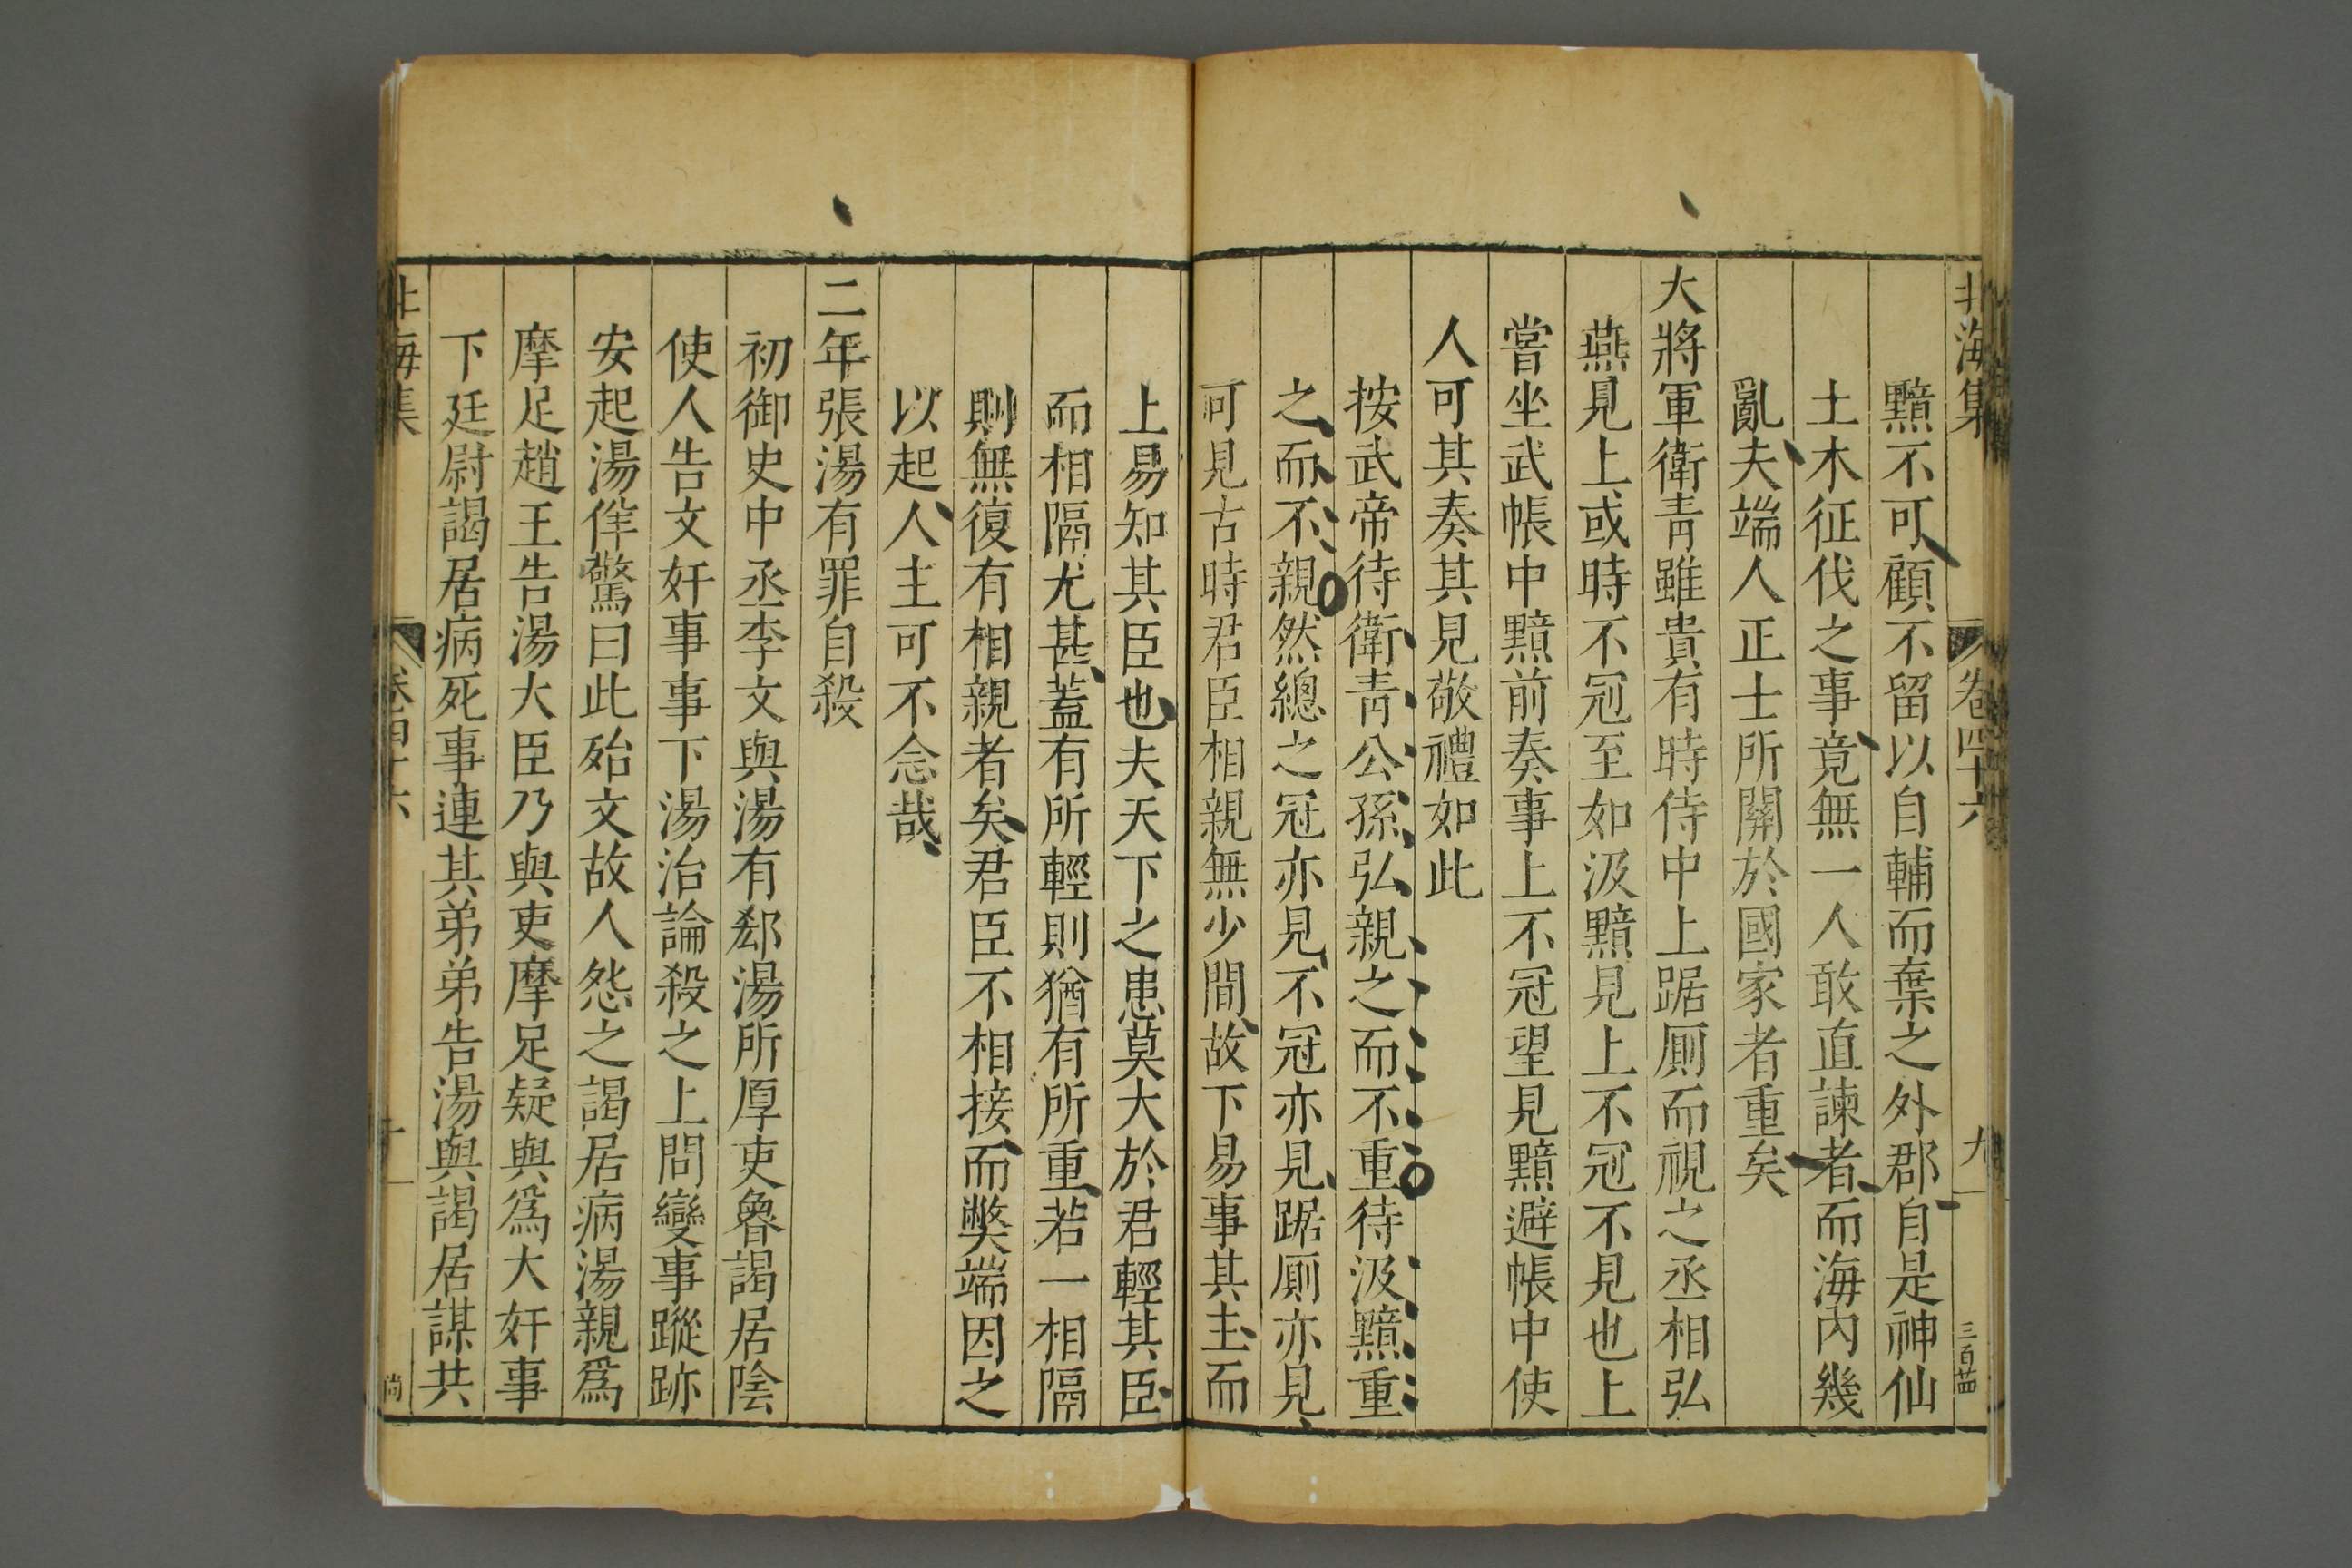 北海集 卷四十六 九 三百苗
黯不可顧不留以自輔而棄之外郡自是神仙
土木征伐之事竟無一人敢直諫者而海內幾
亂夫端人正士所關於國家者重矣
大將軍衛靑雖貴有時侍中上踞厠而視之丞相弘
燕見上或時不冠至如汲黯見上不冠不見也上
嘗坐武帳中黯前奏事上不冠望見黯避帳中使
人可其奏其見敬禮如此
按武帝待衛靑公孫弘親之而不重待汲黯重
之而不親然總之冠亦見不冠亦見踞厠亦見
可見古時君臣相親無少間故下易事其主而
上易知其臣也夫天下之患莫大於君輕其臣
而相隔尤甚蓋有所輕則猶有所重若一相隔
則無復有相親者矣君臣不相接而弊端因之
以起人主可不念哉
二年張湯有罪自殺
初御史中丞李文與湯有郄湯所厚吏魯謁居陰
使人告文奸事事下湯治論殺之上問變事蹤跡
安起湯佯驚曰此殆文故人怨之謁居病湯親爲
摩足趙王告湯大臣乃與吏摩足疑與爲大奸事
下廷尉謁居病死事連其弟弟告湯與謁居謀共
北海集 卷四十六 十 尚